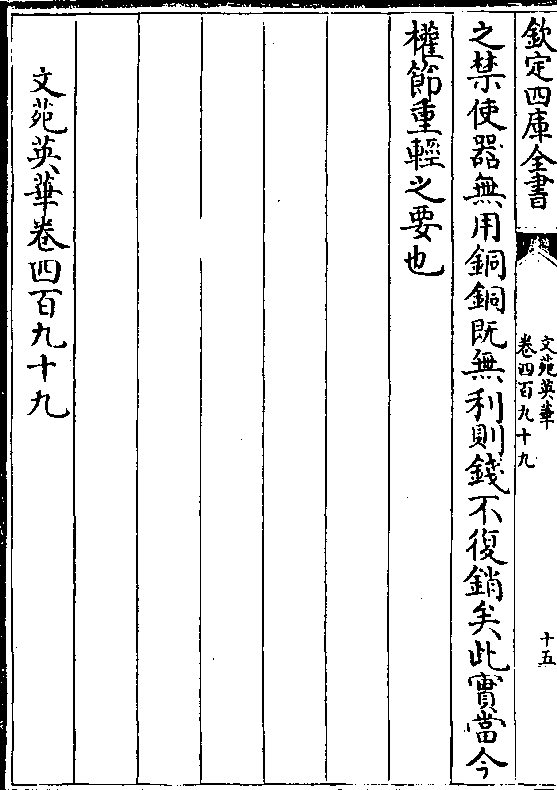 欽定四庫全書
文苑英華
卷四百九十九
十五
之禁使器無用銅銅既無利則錢不復銷矣此實當今
權節重輕之要也
文苑英華卷四百九十九